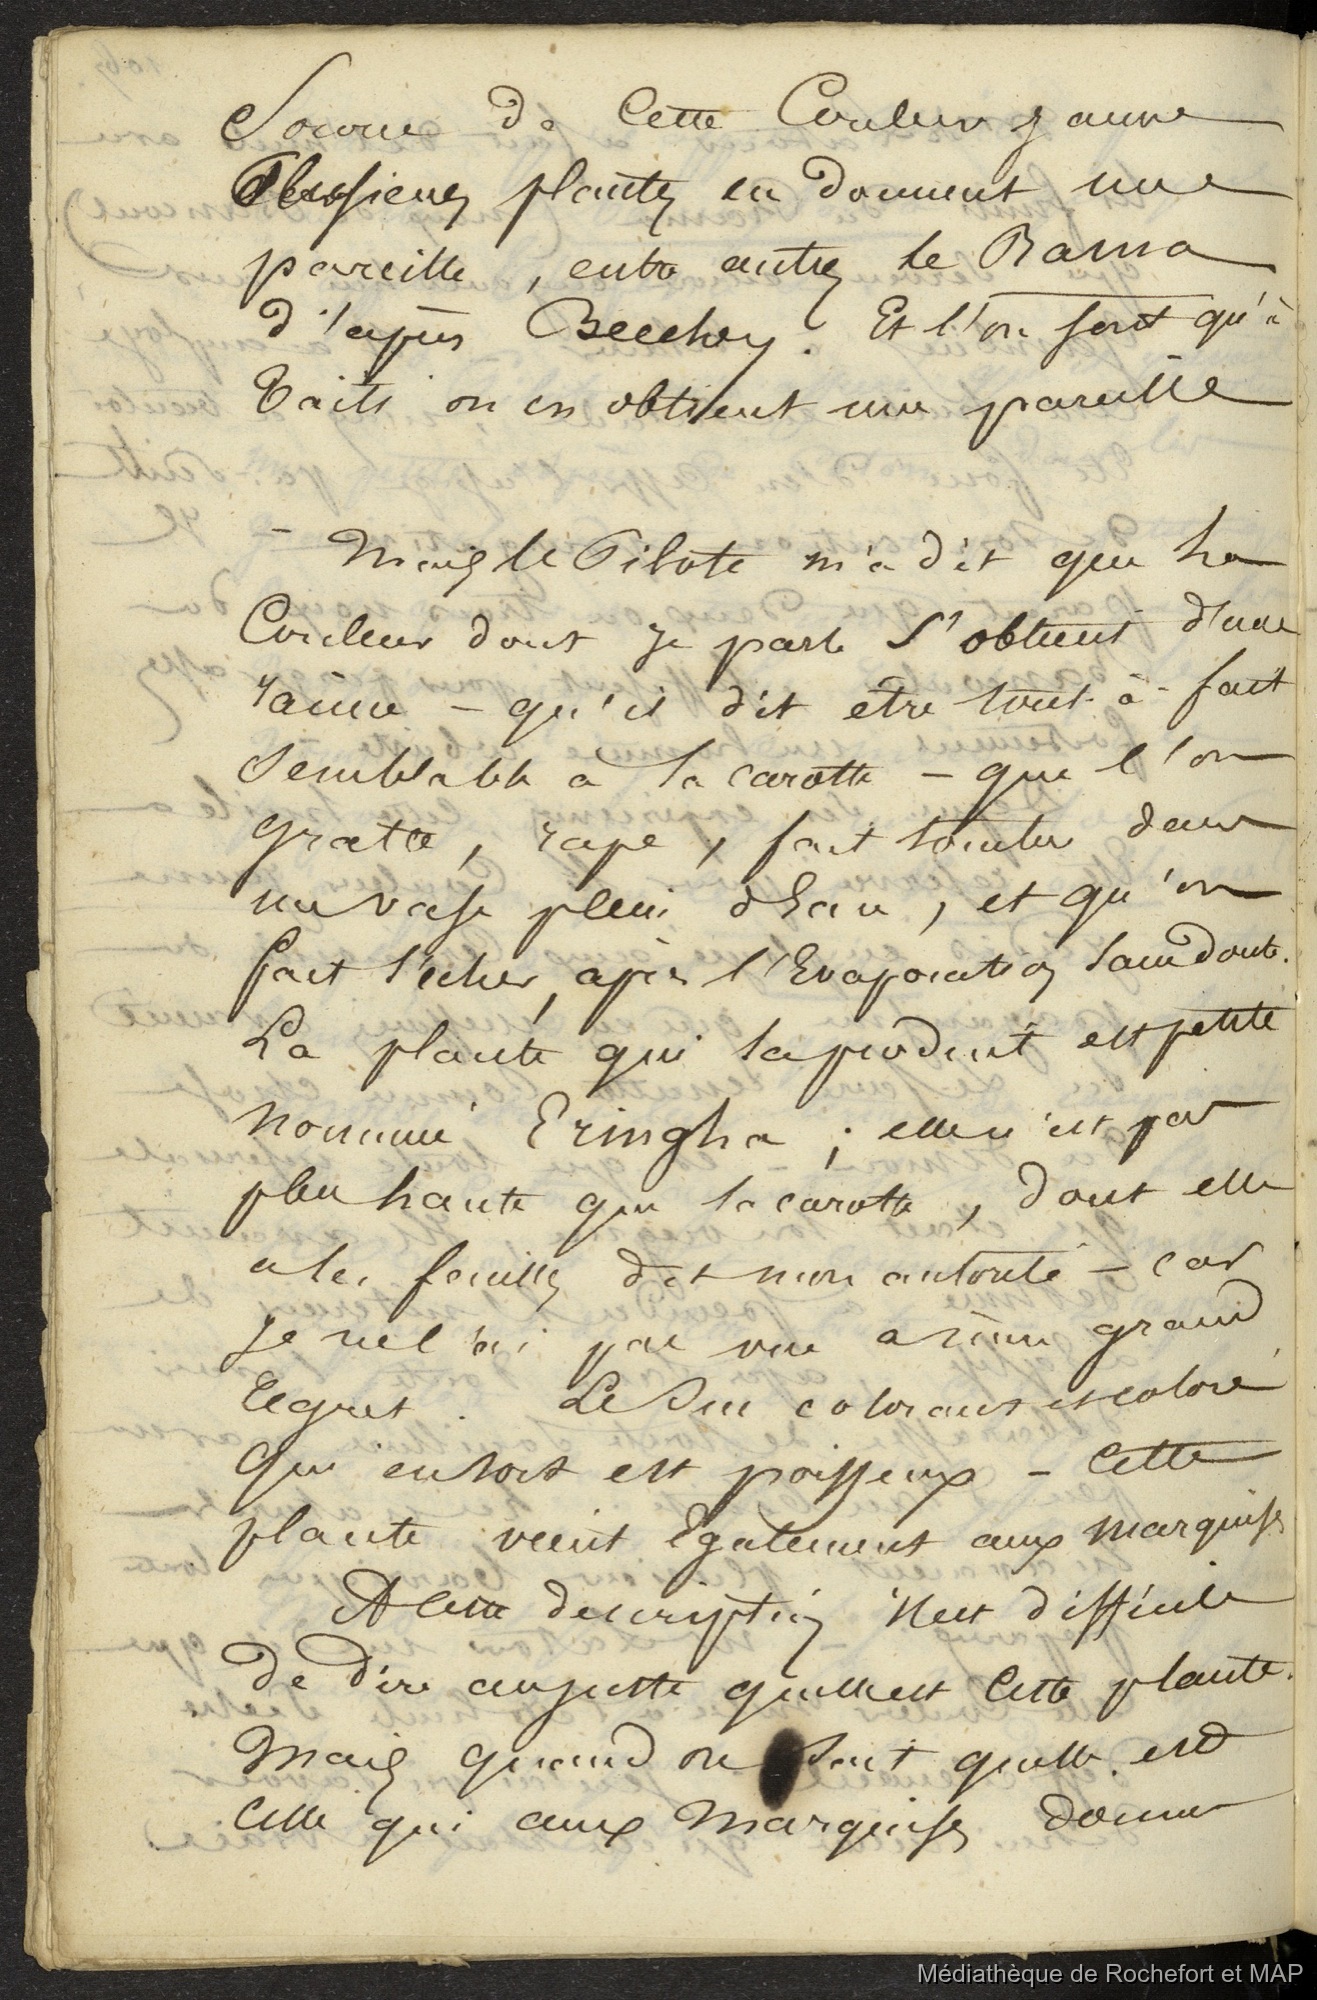 Source de Cette Couleur jaune
Plusieurs plantes en donnent une
pareille, entre autres le Rama
d'après Beechey. Et l'on sait qu'à
Taïti on en obtient une pareille
- Mais le Pilote m'a dit que la
Couleur dont je parle s'obtient d'une
racine - qu'il dit etre tout-à-fait
semblable a la carotte - que l'on
gratte, rape, fait tomber dans
un vase plein d'Eau, et qu'on
fait sécher, après l'Evaporation sans doute.
La plante qui la produit est petite
nommé Eringha ; elle n'est pas
plus haute que la carotte, dont elle
a les feuilles dit mon autorité - car
Je ne l'ai pas vue a mon grand
regret. Le Suc colorant et coloré
Qui en sort est poisseux - Cette
plante vient Egalement aux Marquises
A cette description il est difficile
De dire au juste quelle est Cette plante.
Mais quand on sait quelle est
Celle qui aux Marquises donne
Médiathèque de Rochefort et MAP